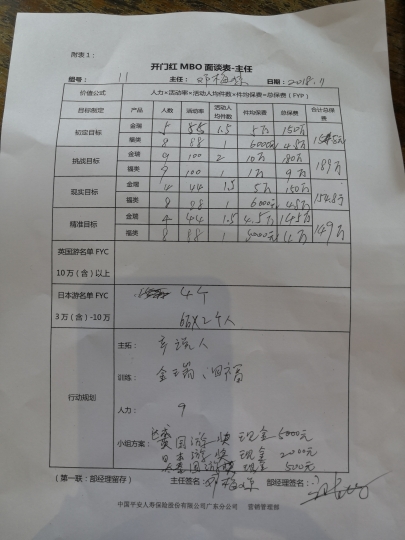 附表 1：
开门红 MBO 面谈表-主任
组号： 11 主任： 日期：2018.11
价值公式 人力×活动率×活动人均件数×件均保费=总保费（FYP）
目标制定 产品 人数 活动率 活动人均件数 件均保费 总保费 合计总保费
初定目标 金瑞 5 55 1.5 5万 150万
福类 8 88 1 6000元 4.8万
挑战目标 金瑞 9 100 2 10万 180万 189万
福类 9 100 1 1万 9万
现实目标 金瑞 4 44 1.5 5万 150万 154.8万
福类 8 88 1 6000元 4.8万
精准目标 金瑞 4 44 1.5 4.5万 145万 149万
福类 8 88 1 万
英国游名单 FYC
10 万（含）以上
日本游名单 FYC 4个
3 万（含）-10万 个人
行动规划
主拓： 人
训练： 金瑞
人力： 9
小组方案： 英国游 奖 现金 5000元
日本游 奖 现金 2000元
国游 现金 500元
（第一联：部经理留存） 主任签名： 部经理签名：
中国平安人寿保险股份有限公司广东分公司 营销管理部